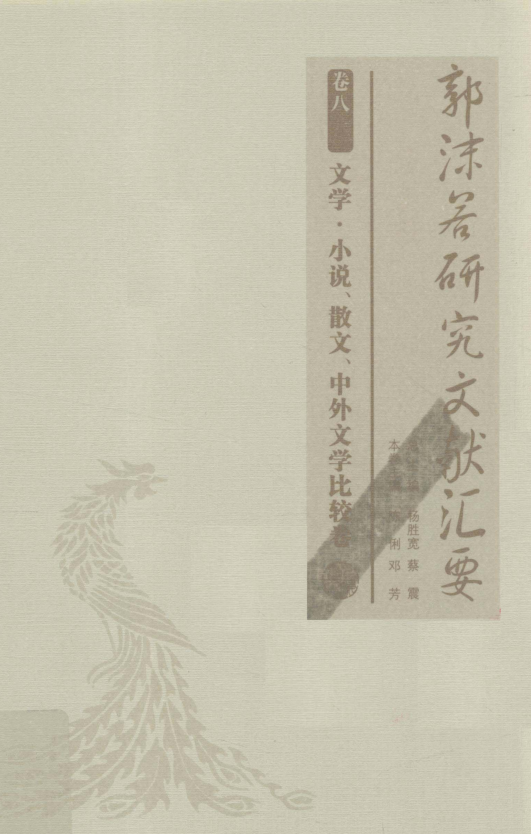 郭沫若研究文献汇要
杨胜宽 蔡震
本 俐 邓芳
卷八
文学·小说、散文、中外文学比较卷